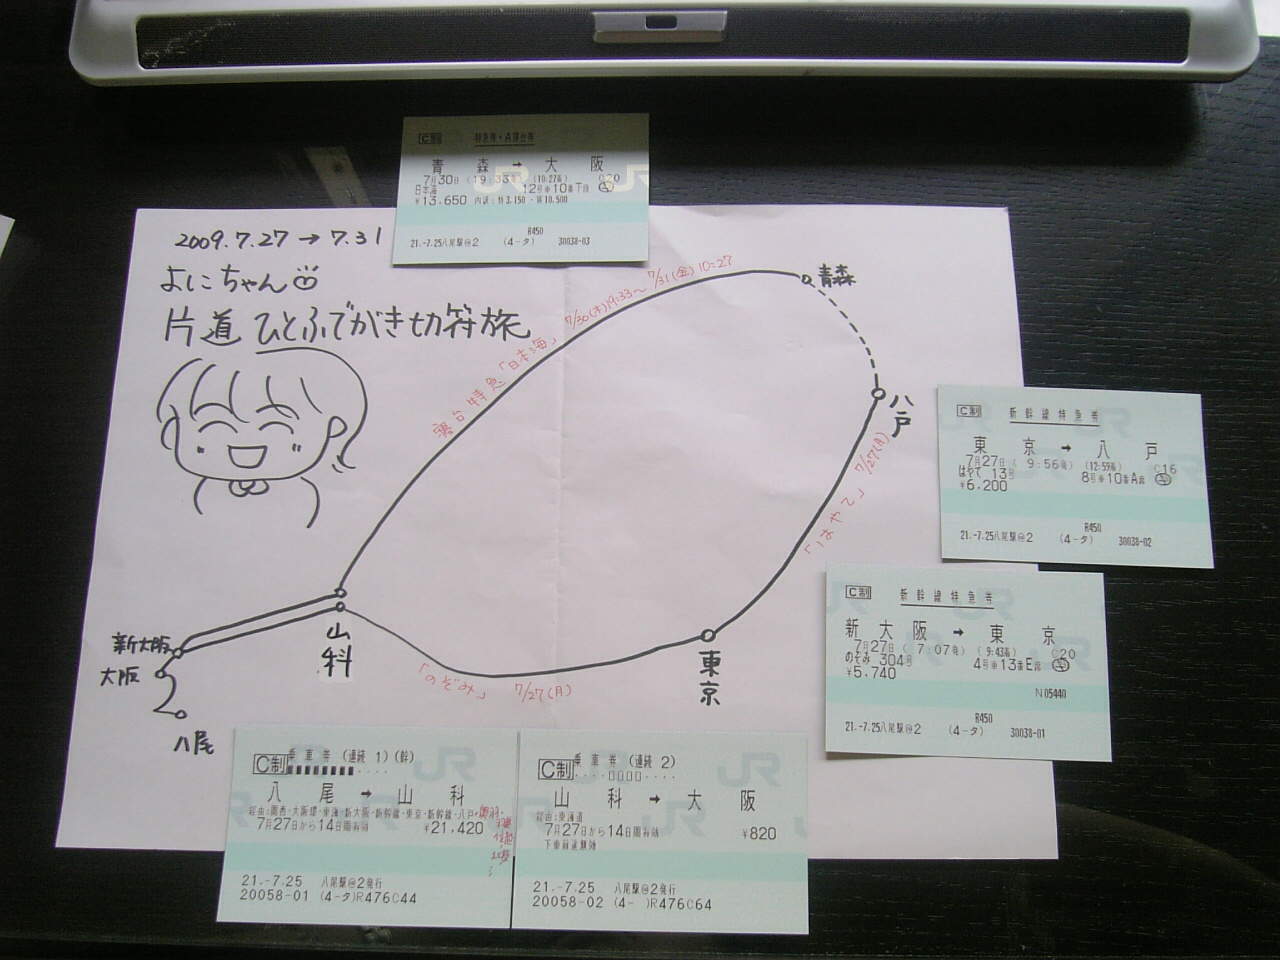 C制 特急券・A寝台券
青森 → 大阪
7月30日 (19:33発) (10:27着) C20
日本海 12号車10番下段
¥13,650 内訳:特3,150・寝10,500
R450
21.-7.25八尾駅@2 (4-タ) 30038-03
2009.7.27→7.31
よにちゃん
片道 ひとふでがき切符旅
寝台特急「日本海」 7/30(木)19:33〜 7/31(金)10:27
青森
八戸
「はやて」 7/27(月)
東京
「のぞみ」 7/27(月)
山科
新大阪
大阪
八尾
C制 新幹線特急券
東京 → 八戸
7月27日 (9:56発) (12:59着) C16
はやて 13号 8号車10番A席
¥6,200
R450
21.-7.25八尾駅@2 (4-タ) 30038-02
C制 新幹線特急券
新大阪 → 東京
7月27日 (7:07発) (9:43着) C20
のぞみ 304号 4号車13番E席
¥5,740
N05440
R450
21.-7.25八尾駅@2 (4-タ) 30038-01
C制 乗車券 (連続 1) (幹)
八尾 → 山科
経由:関西・大阪環・東海・新大阪・新幹線・東京・新幹線・八戸・奥羽・
7月27日から14日間有効 ¥21,420
21.-7.25 八尾駅@2発行
20058-01 (4-タ) R476C44
C制 乗車券 (連続 2)
山科 → 大阪
経由:東海道
7月27日から14日間有効 ¥820
下車前途無効
21.-7.25 八尾駅@2発行
20058-02 (4- ) R476C64